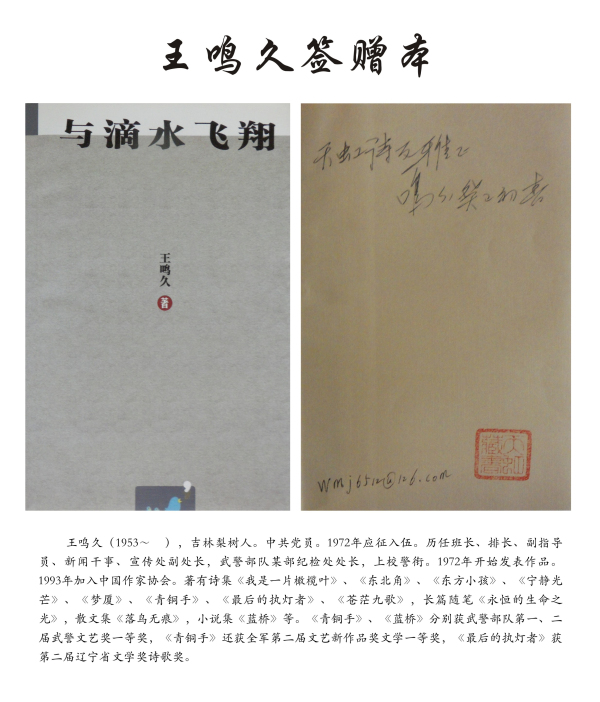 王鸣久签赠本
与滴水飞翔
王鸣久
著
天虹诗友雅正
鸣久 癸巳初春
天虹
藏书
wmj6512@126.com
王鸣久（1953～　），吉林梨树人。中共党员。1972年应征入伍。历任班长、排长、副指导
员、新闻干事、宣传处副处长，武警部队某部纪检处处长，上校警衔。1972年开始发表作品。
1993年加入中国作家协会。著有诗集《我是一片橄榄叶》、《东北角》、《东方小孩》、《宁静光
芒》、《梦厦》、《青铜手》、《最后的执灯者》、《苍茫九歌》，长篇随笔《永恒的生命之
光》，散文集《落鸟无痕》，小说集《蓝桥》等。《青铜手》、《蓝桥》分别获武警部队第一、二
届武警文艺奖一等奖，《青铜手》还获全军第二届文艺新作品奖文学一等奖，《最后的执灯者》获
第二届辽宁省文学奖诗歌奖。